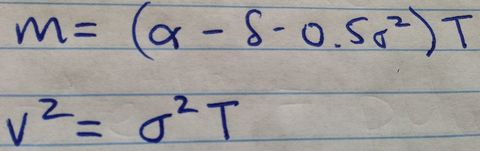 m = (α - δ - 0.5σ²)T
v² = σ²T